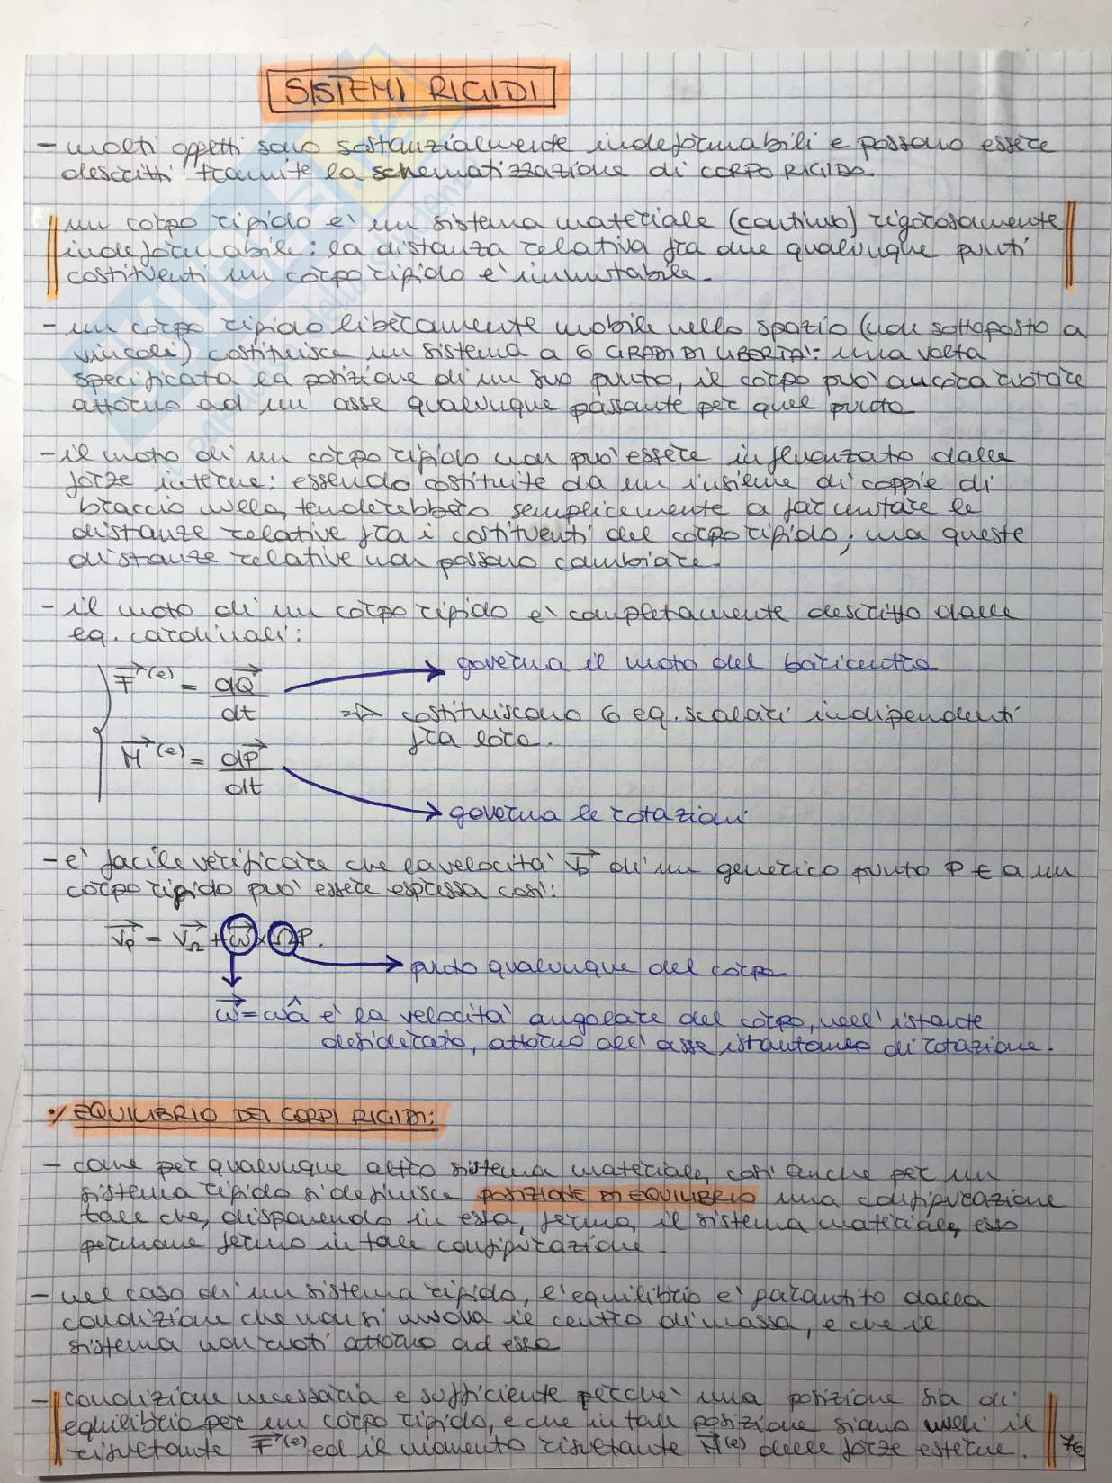 SISTEMI RIGIDI
- molti oggetti sono sostanzialmente indeformabili e possono essere
descritti tramite la schematizzazione di CORPO RIGIDO.
un corpo rigido e' un sistema materiale (continuo) rigorosamente
indeformabile: la distanza relativa fra due qualunque punti
costituenti un corpo rigido e' immutabile.
- un corpo rigido liberamente mobile nello spazio (non sottoposto a
vincoli) costituisce un sistema a 6 GRADI DI LIBERTA': una volta
specificata la posizione di un suo punto, il corpo puo' ancora ruotare
attorno ad un asse qualunque passante per quel punto
- il moto di un corpo rigido non puo' essere influenzato dalle
forze interne: essendo costituite da un insieme di coppie di
braccio nullo, tenderebbero semplicemente a far mutare le
distanze relative fra i costituenti del corpo rigido; ma queste
distanze relative non possono cambiare.
- il moto di un corpo rigido e' completamente descritto dalle
eq. cardinali:
F⃗⁽ᵉ⁾ = dQ⃗/dt → governa il moto del baricentro
⇒ costituiscono 6 eq. scalari indipendenti
fra loro.
M⃗⁽ᵉ⁾ = dP⃗/dt → governa le rotazioni
- e' facile verificare che la velocita' v⃗ₚ di un generico punto P ∈ a un
corpo rigido puo' essere espressa cosi':
v⃗ₚ = v⃗_Ω + ω⃗ × ΩP.
punto qualunque del corpo
ω⃗ = ωâ e' la velocita' angolare del corpo, nell'istante
desiderato, attorno all'asse istantaneo di rotazione.
·/ EQUILIBRIO DEI CORPI RIGIDI:
- come per qualunque altro sistema materiale, cosi' anche per un
sistema rigido si definisce POSIZIONE DI EQUILIBRIO una configurazione
tale che, disponendo in essa, fermo, il sistema materiale, esso
permane fermo in tale configurazione.
- nel caso di un sistema rigido, l'equilibrio e' garantito dalla
condizione che non si muova il centro di massa, e che il
sistema non ruoti attorno ad esso
- condizione necessaria e sufficiente perche' una posizione sia di
equilibrio per un corpo rigido, e che in tale posizione siano nulli il
risultante F⃗⁽ᵉ⁾ ed il momento risultante M⃗⁽ᵉ⁾ delle forze esterne.